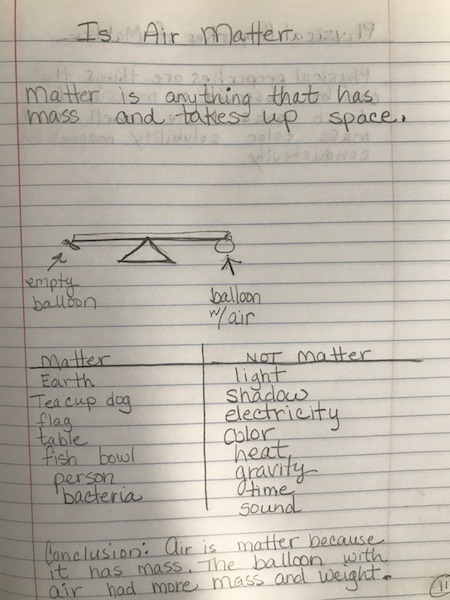 Is Air Matter
Matter is anything that has
mass and takes up space.
empty
balloon
balloon
w/air
Matter
NOT Matter
Earth
light
Teacup dog
shadow
flag
electricity
table
color
fish bowl
heat
person
gravity
bacteria
time
sound
Conclusion: Air is matter because
it has mass. The balloon with
air had more mass and weight.
11